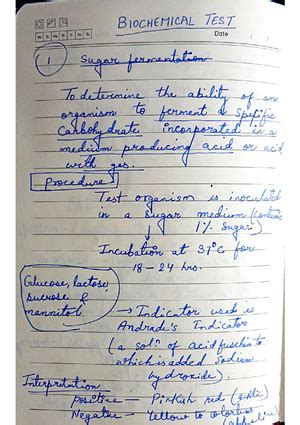 BIOCHEMICAL TEST
Date
1 Sugar fermentation
To determine the ability of an
organism to ferment a specific
Carbohydrate incorporated in a
medium producing acid or acid
with gas.
Procedure
Test organism is inoculated
in a sugar medium (contains
1% sugar)
↓
Incubation at 37°C for
18-24 hrs.
Glucose, lactose,
sucrose &
mannitol
→ Indicator used is
Andrade's Indicator
(a solⁿ of acid fuschin to
which is added Sodium
hydroxide).
Interpretation
Positive - Pinkish red (acidic)
Negative - Yellow to colorless
(alkaline)